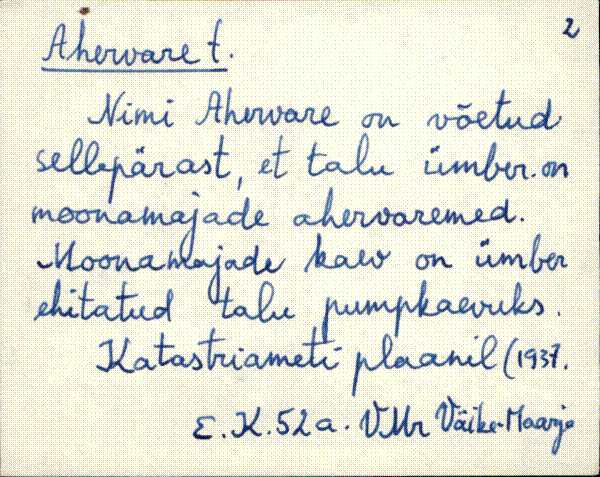 2
Aherware t.
Nimi Aherware on võetud
sellepärast, et talu ümber on
moonamajade ahervaremed.
Moonamajade kaev on ümber
ehitatud talu pumpkaevuks.
Katastriameti plaanil (1937.
E.K. 52a. VMr Väike-Maarja